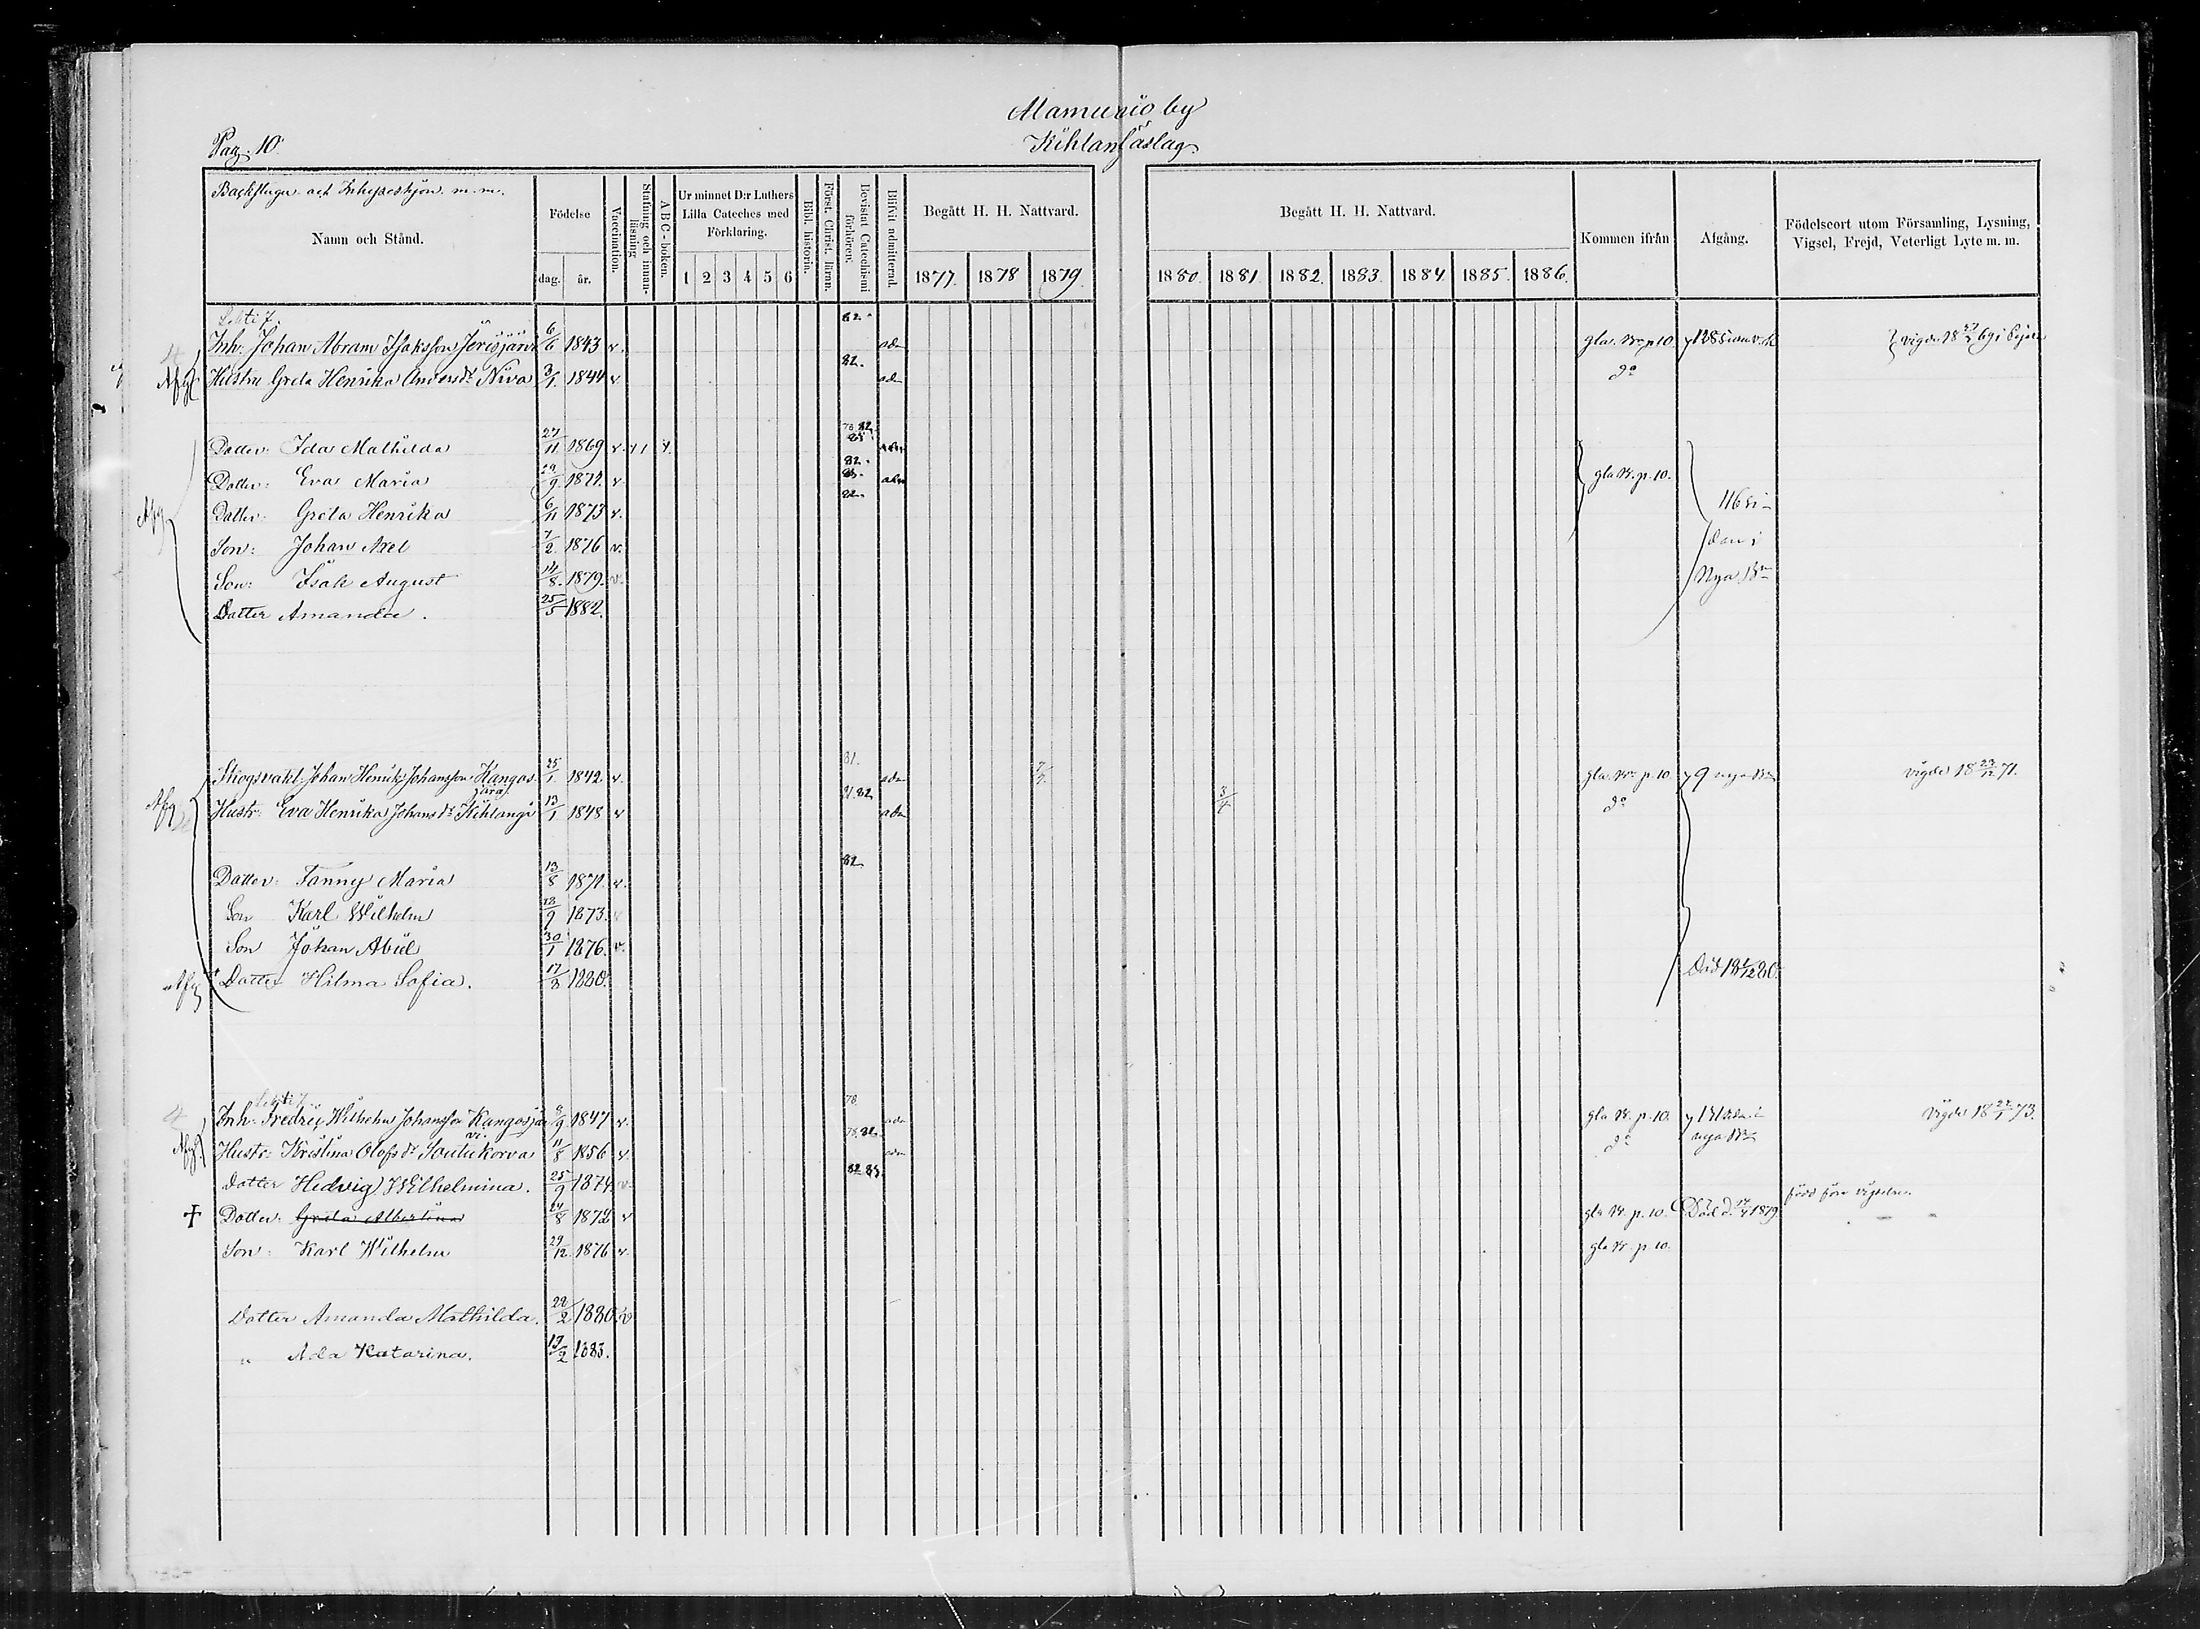 Mamunio by
Pag. 10. Kihlanfäslag.
Backstugu och Inhyseshjon m.m.
Namn och Stånd.
Födelse
dag. år.
Vaccination.
Stafning och innanläsning
ABC-boken.
Ur minnet D:r Luthers Lilla Cateches med Förklaring.
1 2 3 4 5 6
Bibl. historia.
Först. Christ. läran.
Bevistat Catechismi förhören.
Blifvit admitterad.
Begått H. H. Nattvard.
1877. 1878 1879.
Begått H. H. Nattvard.
1880. 1881. 1882. 1883. 1884. 1885. 1886.
Kommen ifrån
Afgång.
Födelseort utom Församling, Lysning, Vigsel, Frejd, Veterligt Lyte m. m.
Inh. Johan Abram Isaksson Jerisjärvi 6/6 1843 v. 82. adm gla. Bn p 10
Afg Hustru Greta Henrika Andersdr Niva 3/1. 1844 v 82. adm do
Dotter: Ida Mathilda 27/11 1869 v. 78 82 85 adm
Dotter: Eva Maria 29/9 1871. v. 82. 85. adm gla B. p. 10.
Afg Dotter: Greta Henrika 6/11 1873 v. 82. 116 si-
Son: Johan Axel 7/2 1876 v. dan i
Son: Isak August 14/8. 1879. v. Nya Bn
Dotter Amanda. 25/5 1882.
Johan Henrik Johansson Kangosjärvi 25/1. 1842 v. 81. adm 7/7. gla. Bn p. 10 9 nya Bn vigde 18 23/12 71.
Afg Hustr: Eva Henrika Johansdr Kihlangi 13/1 1848 v 81.82 adm 3/4 do
Dotter: Fanny Maria 13/8 1871. v. 82
Son Karl Wilhelm 1873.
Son Johan Abiel 30/1 1876. v.
Afg Dotter Hilma Sofia. 17/8 1880.
Inh. Fredric Wilhelm Johansson Kangosjärvi. 8/9 1847 v. 78 adm gla B. p. 10. 131 sidan i vigde 18 73.
Afg. Hustr: Kristina Olofsdr Soutukorva 11/8 1856 v. 78.82 adm do nya Bn
Dotter Hedvig Wilhelmina. 25/9 1874. v. 82 85
+ Dotter: Greta Albertina 24/8 1872 v gla B. p. 10. Död d. 1879 född före vigseln.
Son: Karl Wilhelm 29/12 1876 v. gla B. p. 10.
Dotter Amanda Mathilda. 1880. v
" Ada Katarina. 1883.